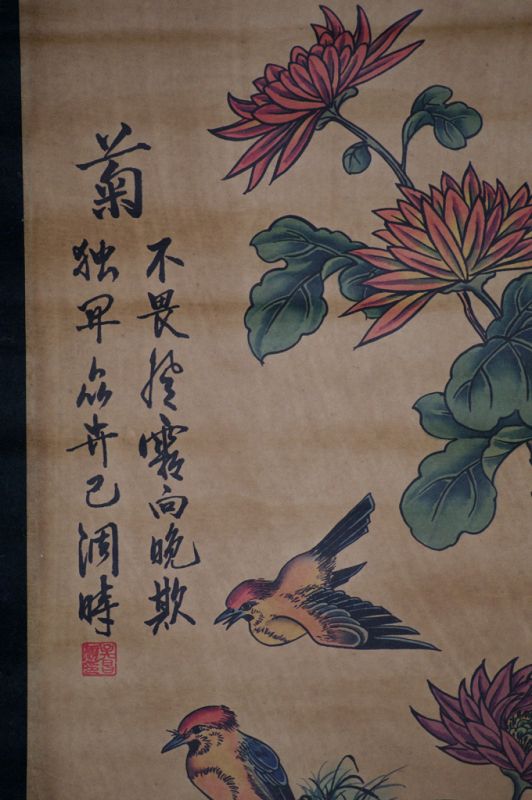 菊
不畏風霜向晚欺
独開众卉已凋時